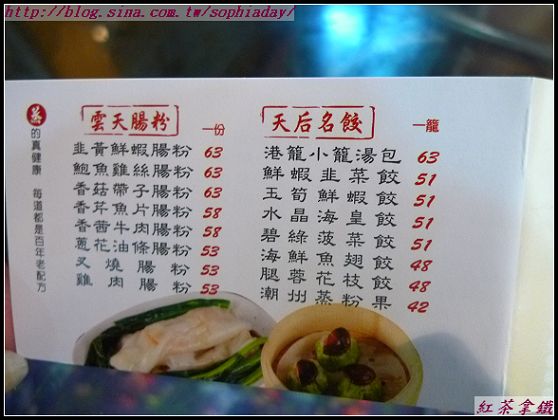 http://blog.sina.com.tw/sophiaday/
蒸的真健康 每道都是百年老配方
雲天腸粉 一份
韭黃鮮蝦腸粉 63
鮑魚雞絲腸粉 63
香菇帶子腸粉 63
香芹魚片腸粉 58
香茜牛肉腸粉 58
蔥花油條腸粉 53
叉燒腸粉 53
雞肉腸粉 53
天后名餃 一籠
港籠小籠湯包 63
鮮蝦韭菜餃 51
玉筍鮮蝦餃 51
水晶海皇餃 51
碧綠菠菜餃 51
海鮮魚翅餃 48
腿蓉花枝餃 48
潮州蒸粉果 42
紅茶拿鐵